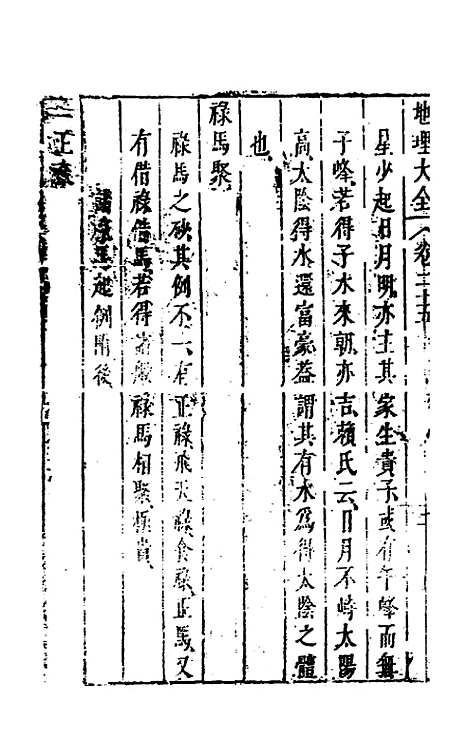 地理大全 卷二十五
星少起日月明亦主其家生貴子或有午峰而無
子峰若得子水來朝亦吉賴氏云日月不峙太陽
高太陰得水還富豪葢謂其有水為得太陰之體
也
祿馬聚
祿馬之砂其例不一有正祿飛天祿食祿正馬又
有借祿借馬若得諸般祿馬相聚極貴
祿馬起例附後
一正祿